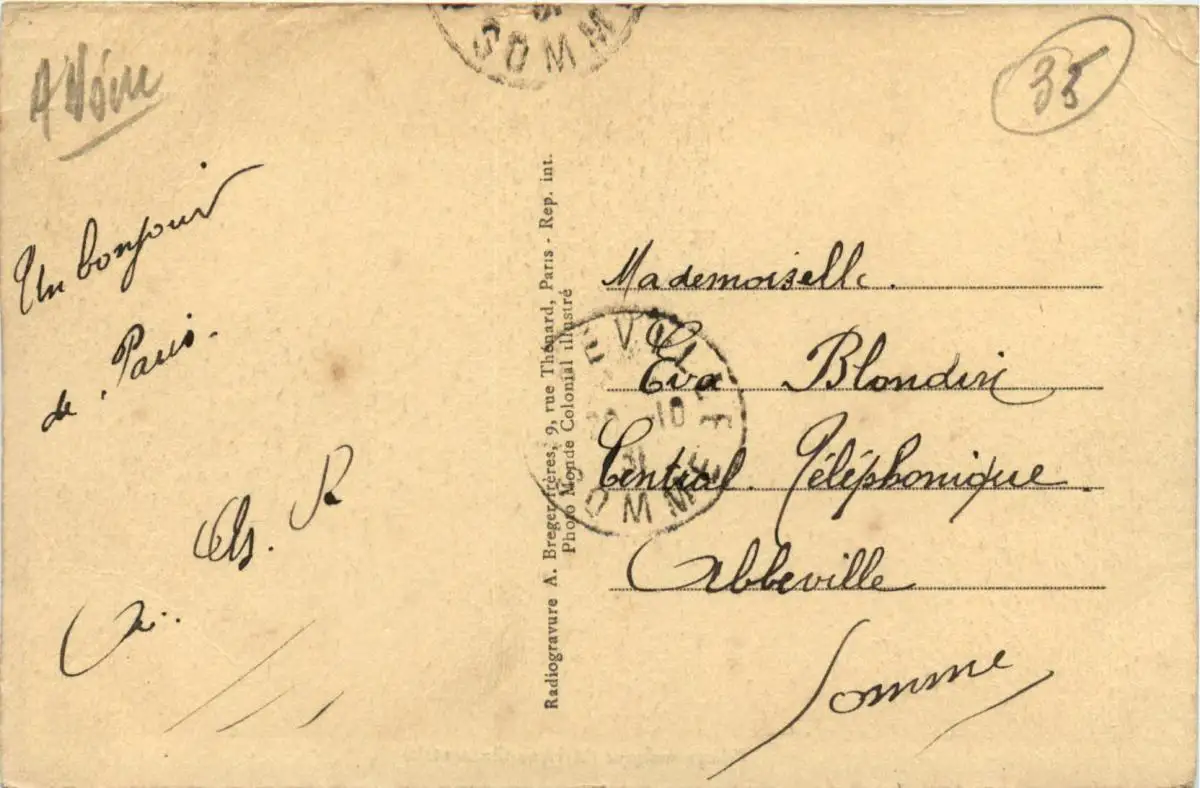 SOMM
35
Un bonjour
de Paris.
Radiogravure A. Breger frères, 9, rue Thénard, Paris - Rep. int.
Photo Monde Colonial illustré
Mademoiselle.
Eva Blondin
Central Téléphonique
Abbeville
Somme
EVILLE
-10
31
SOMME